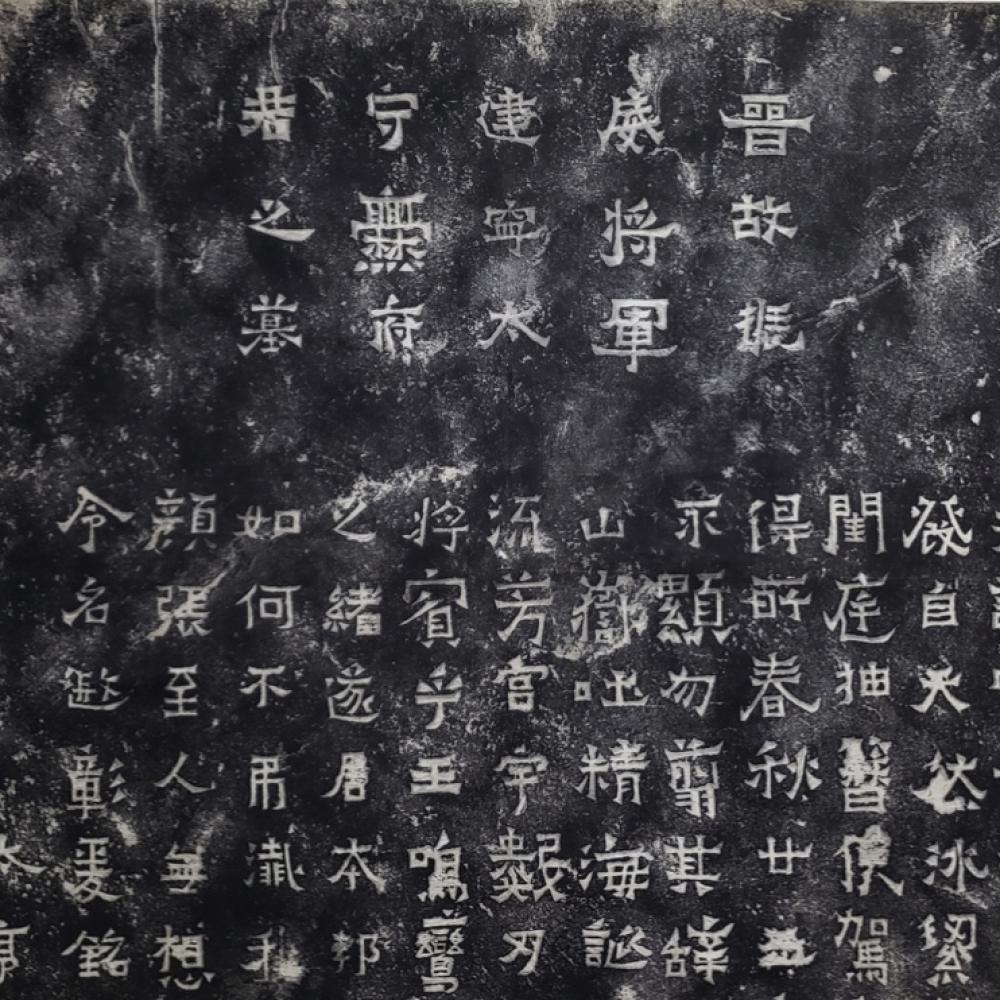 晉故振
威将軍
建寧太
守爨府
君之墓
發自天然冰絜
閨庭抽簪俟駕
得蔚春秋廿五
永顯勿翦其辭
山嶽吐精海誕
流芳宮宇數刃
將賓乎王鳴鸞
之緒遂居本邦
如何不弔瀸我
顏張至人無想
令名邈彰爰銘